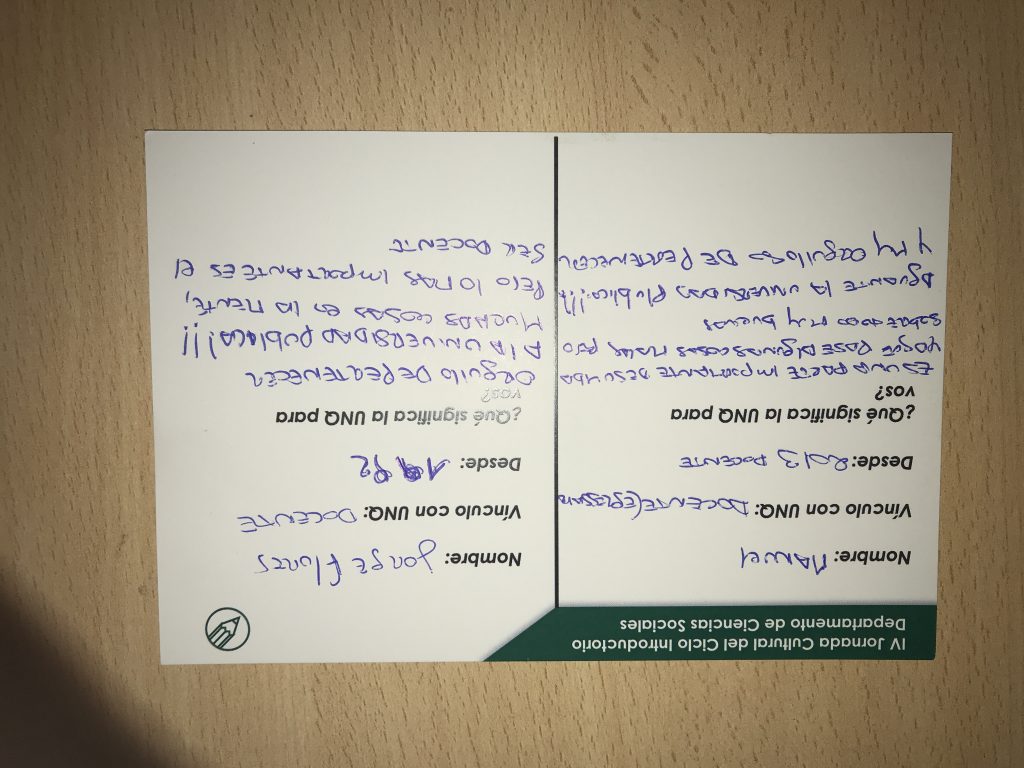 IV Jornada Cultural del Ciclo Introductorio
Departamento de Ciencias Sociales
Nombre: Manuel
Vínculo con UNQ: DOCENTE
Desde: 2013 DOCENTE
¿Qué significa la UNQ para
vos?
ES UNA PARTE IMPORTANTE DE
PASE Algunas cosas malas, pero
sobre todo muy buenas
Aguante la UNIVERSIDAD Publica!!!
y muy orgulloso DE PERTENECER
Nombre: Jorge Flores
Vínculo con UNQ: DOCENTE
Desde: 1992
¿Qué significa la UNQ para
vos?
ORGULLO DE PERTENECER
A lA UNIVERSIDAD PUBLICA!!!
MUCHAS COSAS en la MENTE,
PERO lo MAS IMPORTANTE ES el
SER DOCENTE